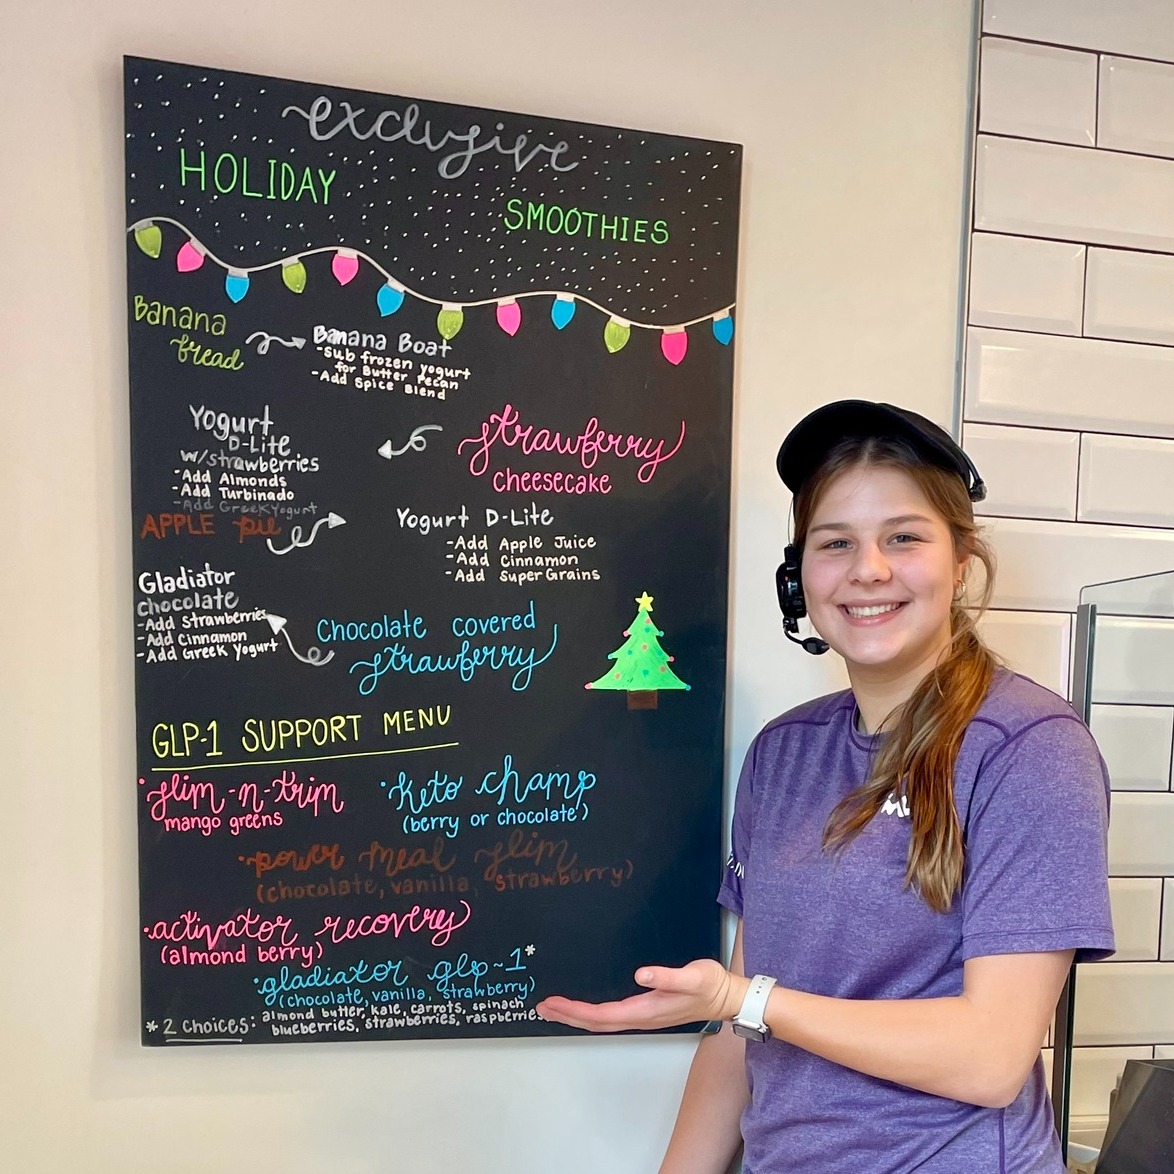 exclusive
HOLIDAY
SMOOTHIES
Banana
bread
Banana Boat
-Sub frozen yogurt
for Butter Pecan
-Add Spice Blend
strawberry
cheesecake
Yogurt
D-Lite
w/strawberries
-Add Almonds
-Add Turbinado
-Add Greek Yogurt
APPLE pie
Yogurt D-Lite
-Add Apple Juice
-Add Cinnamon
-Add Super Grains
Chocolate covered
strawberry
Gladiator
chocolate
-Add Strawberries
-Add Cinnamon
-Add Greek Yogurt
GLP-1 SUPPORT MENU
·slim-n-trim
mango greens
·keto champ
(berry or chocolate)
·power meal slim
(chocolate, vanilla, strawberry)
·activator recovery
(almond berry)
·gladiator glp-1*
(chocolate, vanilla, strawberry)
* 2 choices: almond butter, kale, carrots, spinach
blueberries, strawberries, raspberries